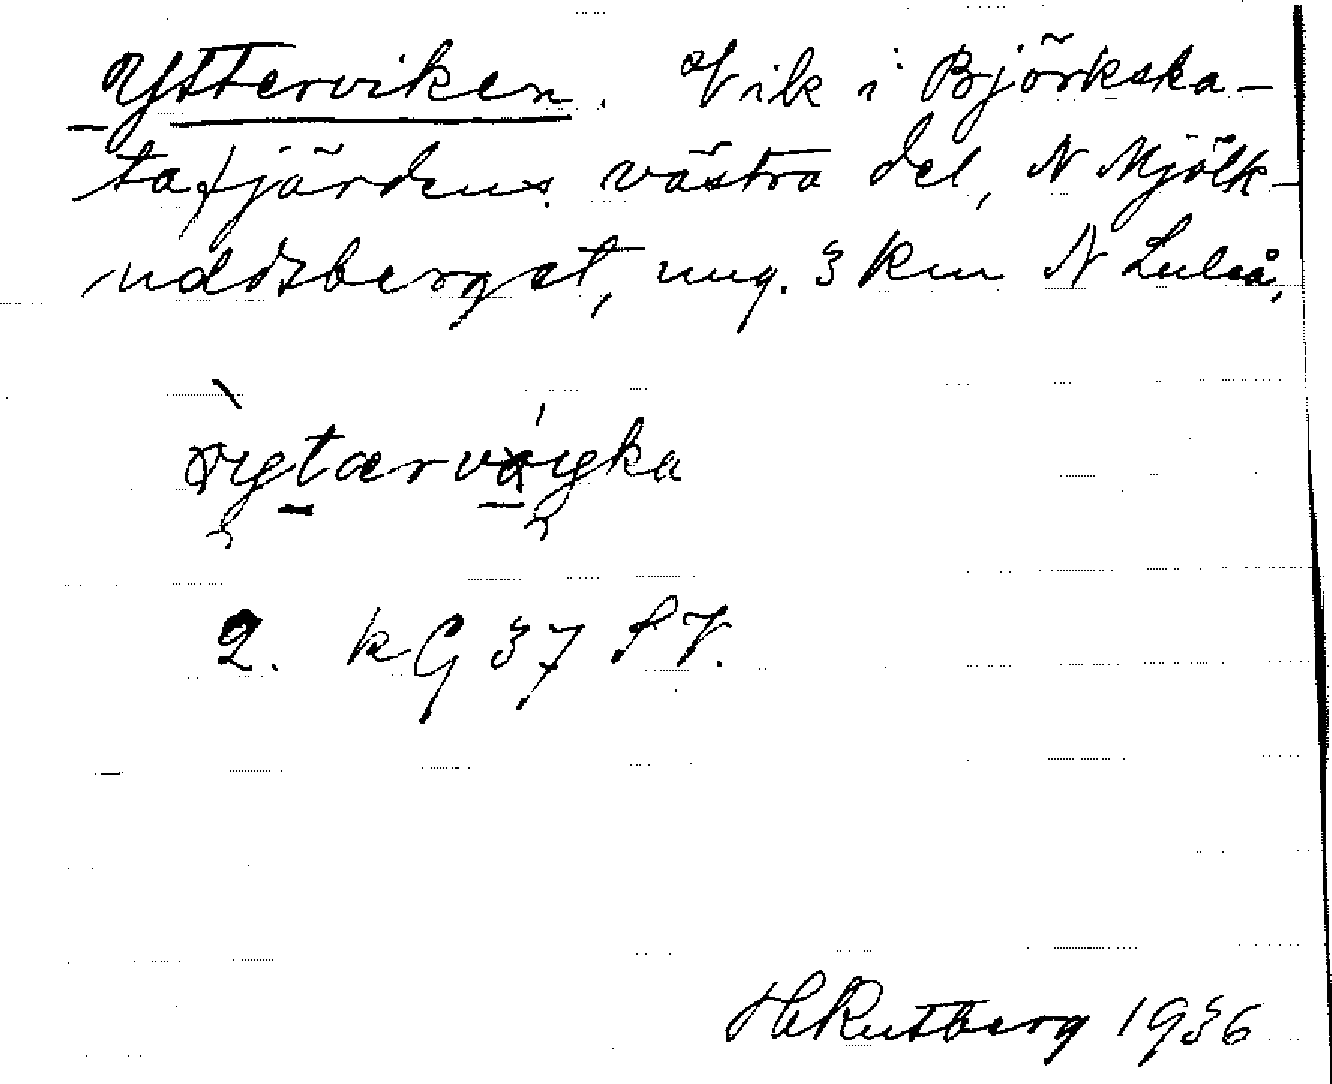 Ytterviken. Vik i Björkska-
tafjärdens västra del, N Mjölk-
uddsberget, ung. 3 km N Luleå,
2. kG 37 SV.
H Rutberg 1936